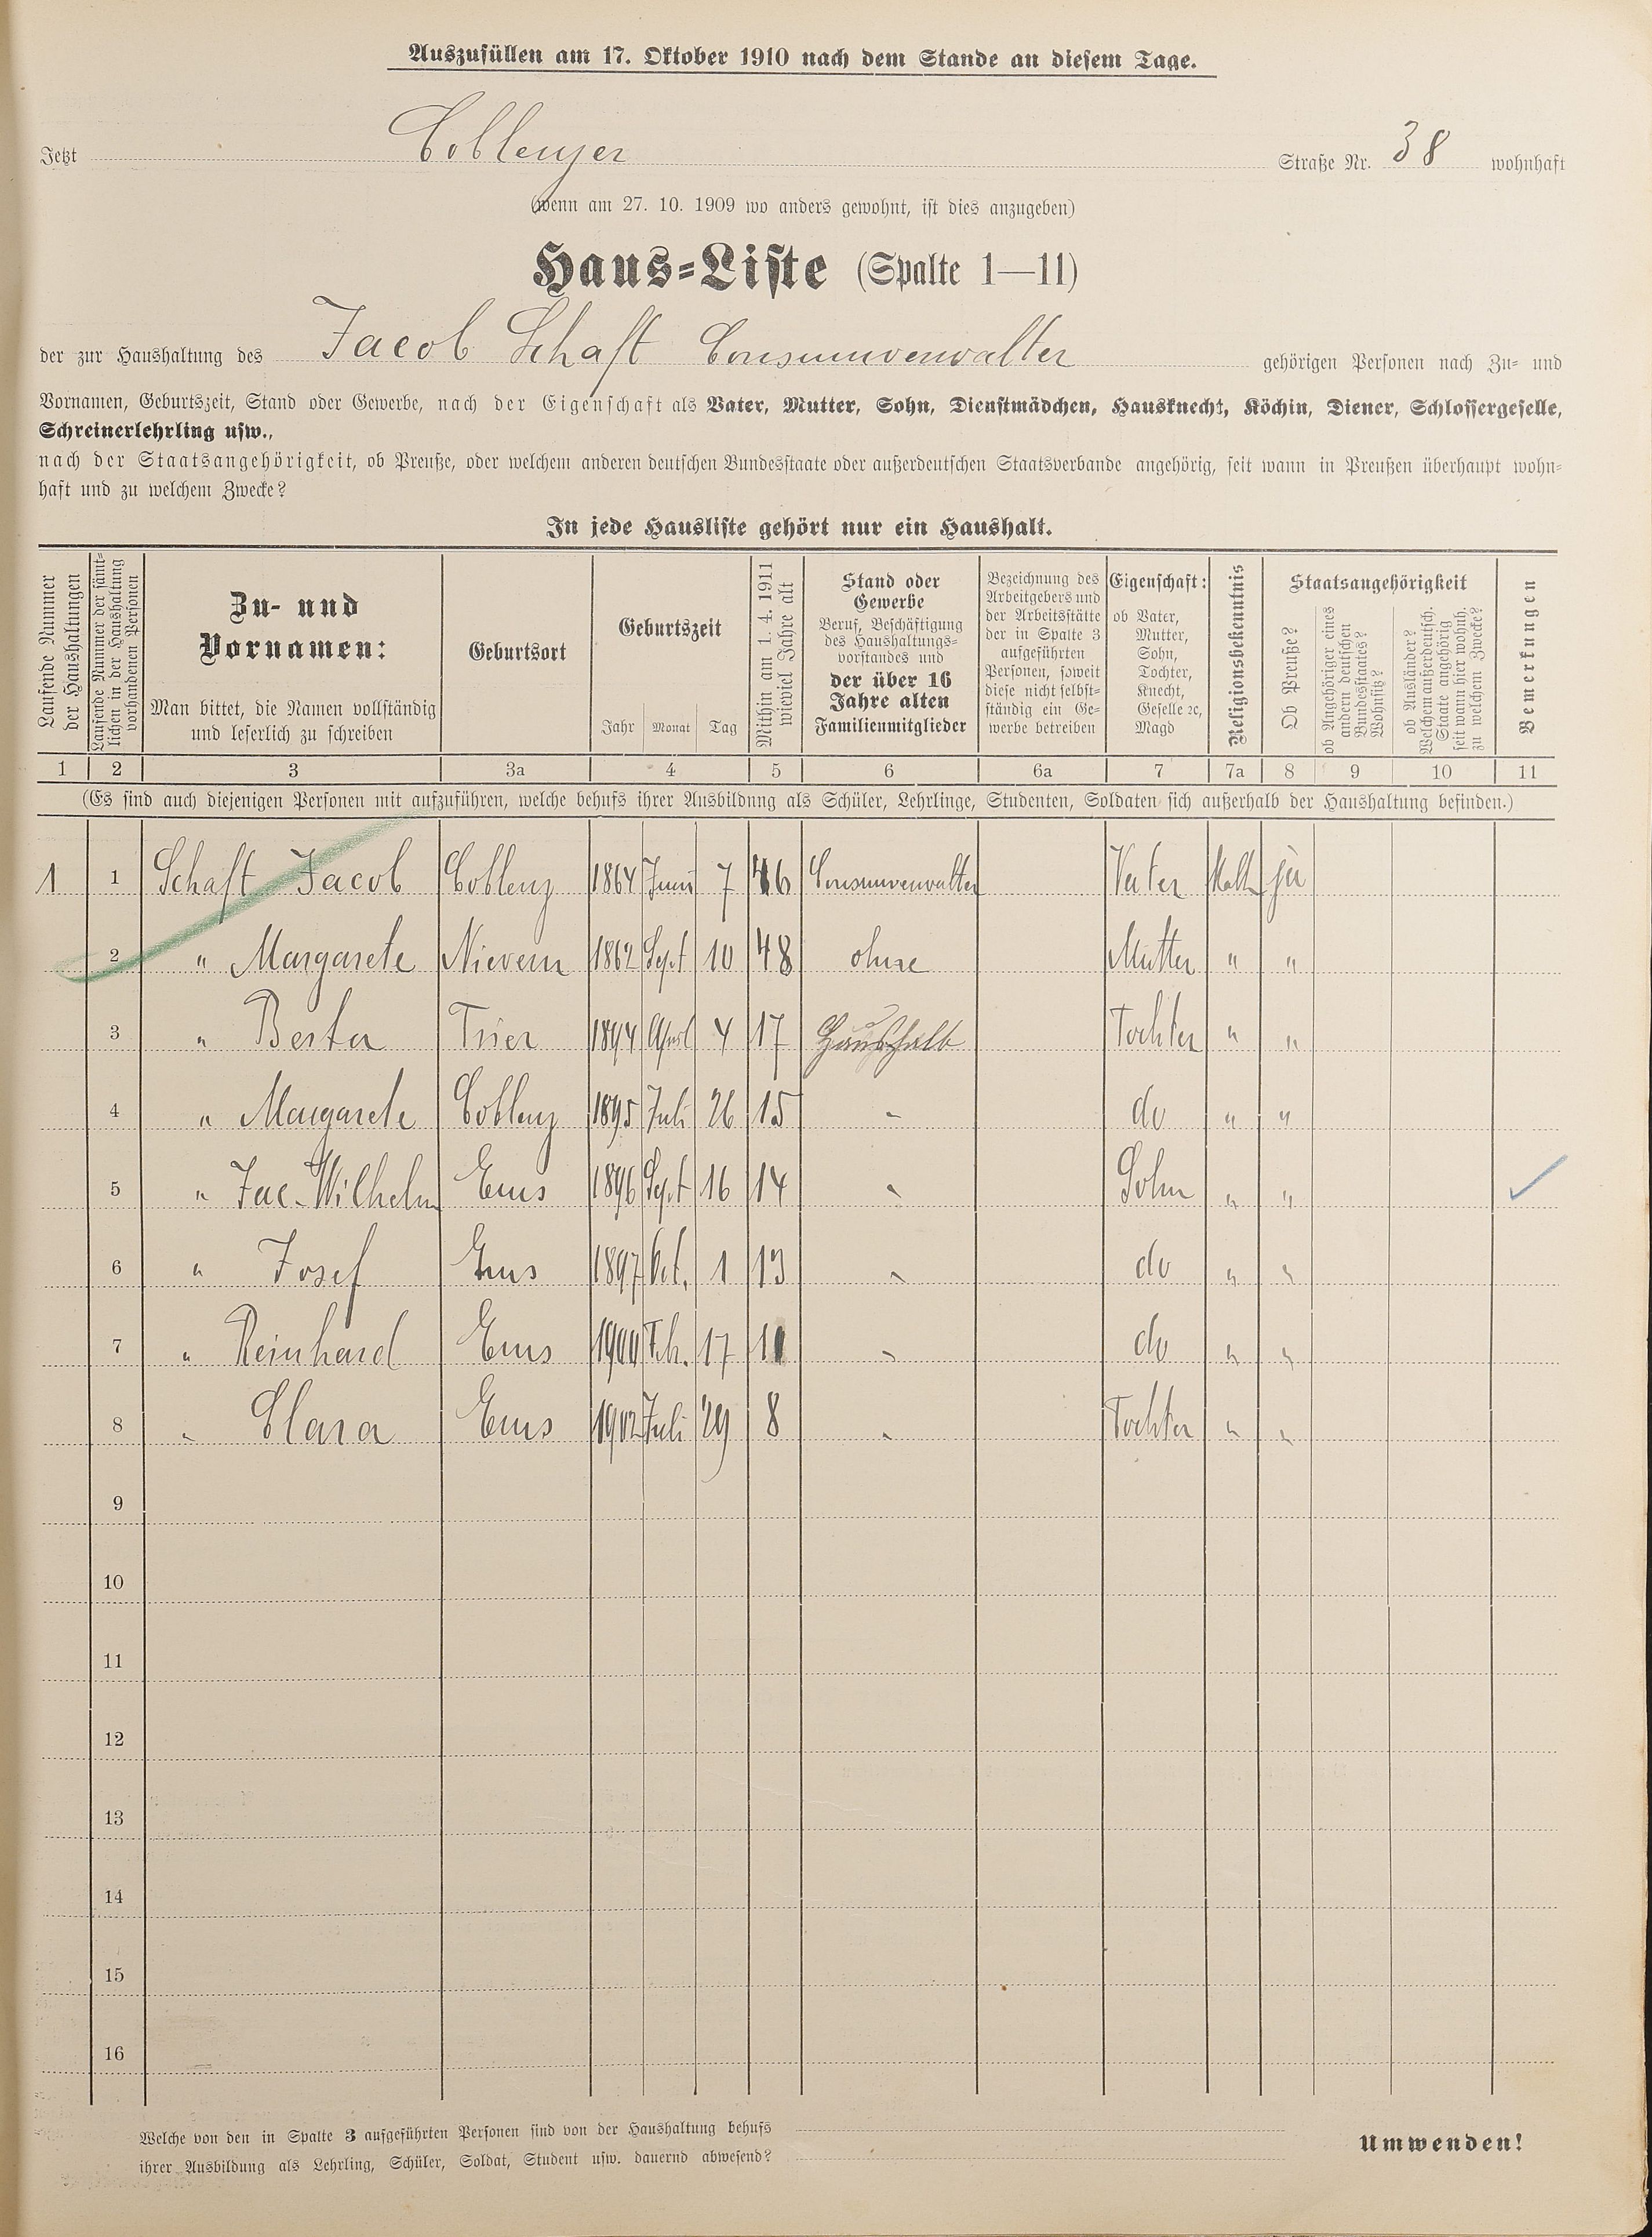 Auszufüllen am 17. Oktober 1910 nach dem Stande an diesem Tage.
Jetzt Coblenzer Straße Nr. 38 wohnhaft
(wenn am 27. 10. 1909 wo anders gewohnt, ist dies anzugeben)
Haus-Liste (Spalte 1—11)
der zur Haushaltung des Jacob Schaft Consumverwalter gehörigen Personen nach Zu- und
Vornamen, Geburtszeit, Stand oder Gewerbe, nach der Eigenschaft als Vater, Mutter, Sohn, Dienstmädchen, Hausknecht, Köchin, Diener, Schlossergeselle,
Schreinerlehrling usw.,
nach der Staatsangehörigkeit, ob Preuße, oder welchem anderen deutschen Bundesstaate oder außerdeutschen Staatsverbande angehörig, seit wann in Preußen überhaupt wohn-
haft und zu welchem Zwecke?
In jede Hausliste gehört nur ein Haushalt.
Laufende Nummer
der Haushaltungen
Laufende Nummer der sämt-
lichen in der Haushaltung
vorhandenen Personen
Zu- und
Vornamen:
Man bittet, die Namen vollständig
und leserlich zu schreiben
Geburtsort
Geburtszeit
Jahr Monat Tag
Mithin am 1. 4. 1911
wieviel Jahre alt
Stand oder
Gewerbe
Beruf, Beschäftigung
des Haushaltungs-
vorstandes und
der über 16
Jahre alten
Familienmitglieder
Bezeichnung des
Arbeitgebers und
der Arbeitsstätte
der in Spalte 3
aufgeführten
Personen, soweit
diese nicht selbst-
ständig ein Ge-
werbe betreiben
Eigenschaft:
ob Vater,
Mutter,
Sohn,
Tochter,
Knecht,
Geselle ꝛc,
Magd
Religionsbekenntnis
Staatsangehörigkeit
Ob Preuße?
ob Angehöriger eines
andern deutschen
Bundesstaates?
Wohnsitz?
ob Ausländer?
Welchem außerdeutsch.
Staate angehörig
seit wann hier wohnh.
zu welchem Zwecke?
Bemerkungen
1 2 3 3a 4 5 6 6a 7 7a 8 9 10 11
(Es sind auch diejenigen Personen mit aufzuführen, welche behufs ihrer Ausbildung als Schüler, Lehrlinge, Studenten, Soldaten sich außerhalb der Haushaltung befinden.)
1 1 Schaft Jacob Coblenz 1864 Juni 7 46 Consumverwalter Vater Kath ja
2 " Margarete Nievern 1862 Sept 10 48 ohne Mutter " "
3 " Berta Trier 1894 April 4 17 Haushalt Tochter " "
4 " Margarete Coblenz 1895 Juli 26 15 - do " "
5 " Jac. Wilhelm Ems 1896 Sept 16 14 " Sohn " "
6 " Josef Ems 1897 Oct. 1 13 " do " "
7 " Reinhard Ems 1900 Feb. 17 11 " do " "
8 " Clara Ems 1902 Juli 29 8 " Tochter " "
9
10
11
12
13
14
15
16
Welche von den in Spalte 3 aufgeführten Personen sind von der Haushaltung behufs
ihrer Ausbildung als Lehrling, Schüler, Soldat, Student usw. dauernd abwesend?
Umwenden!